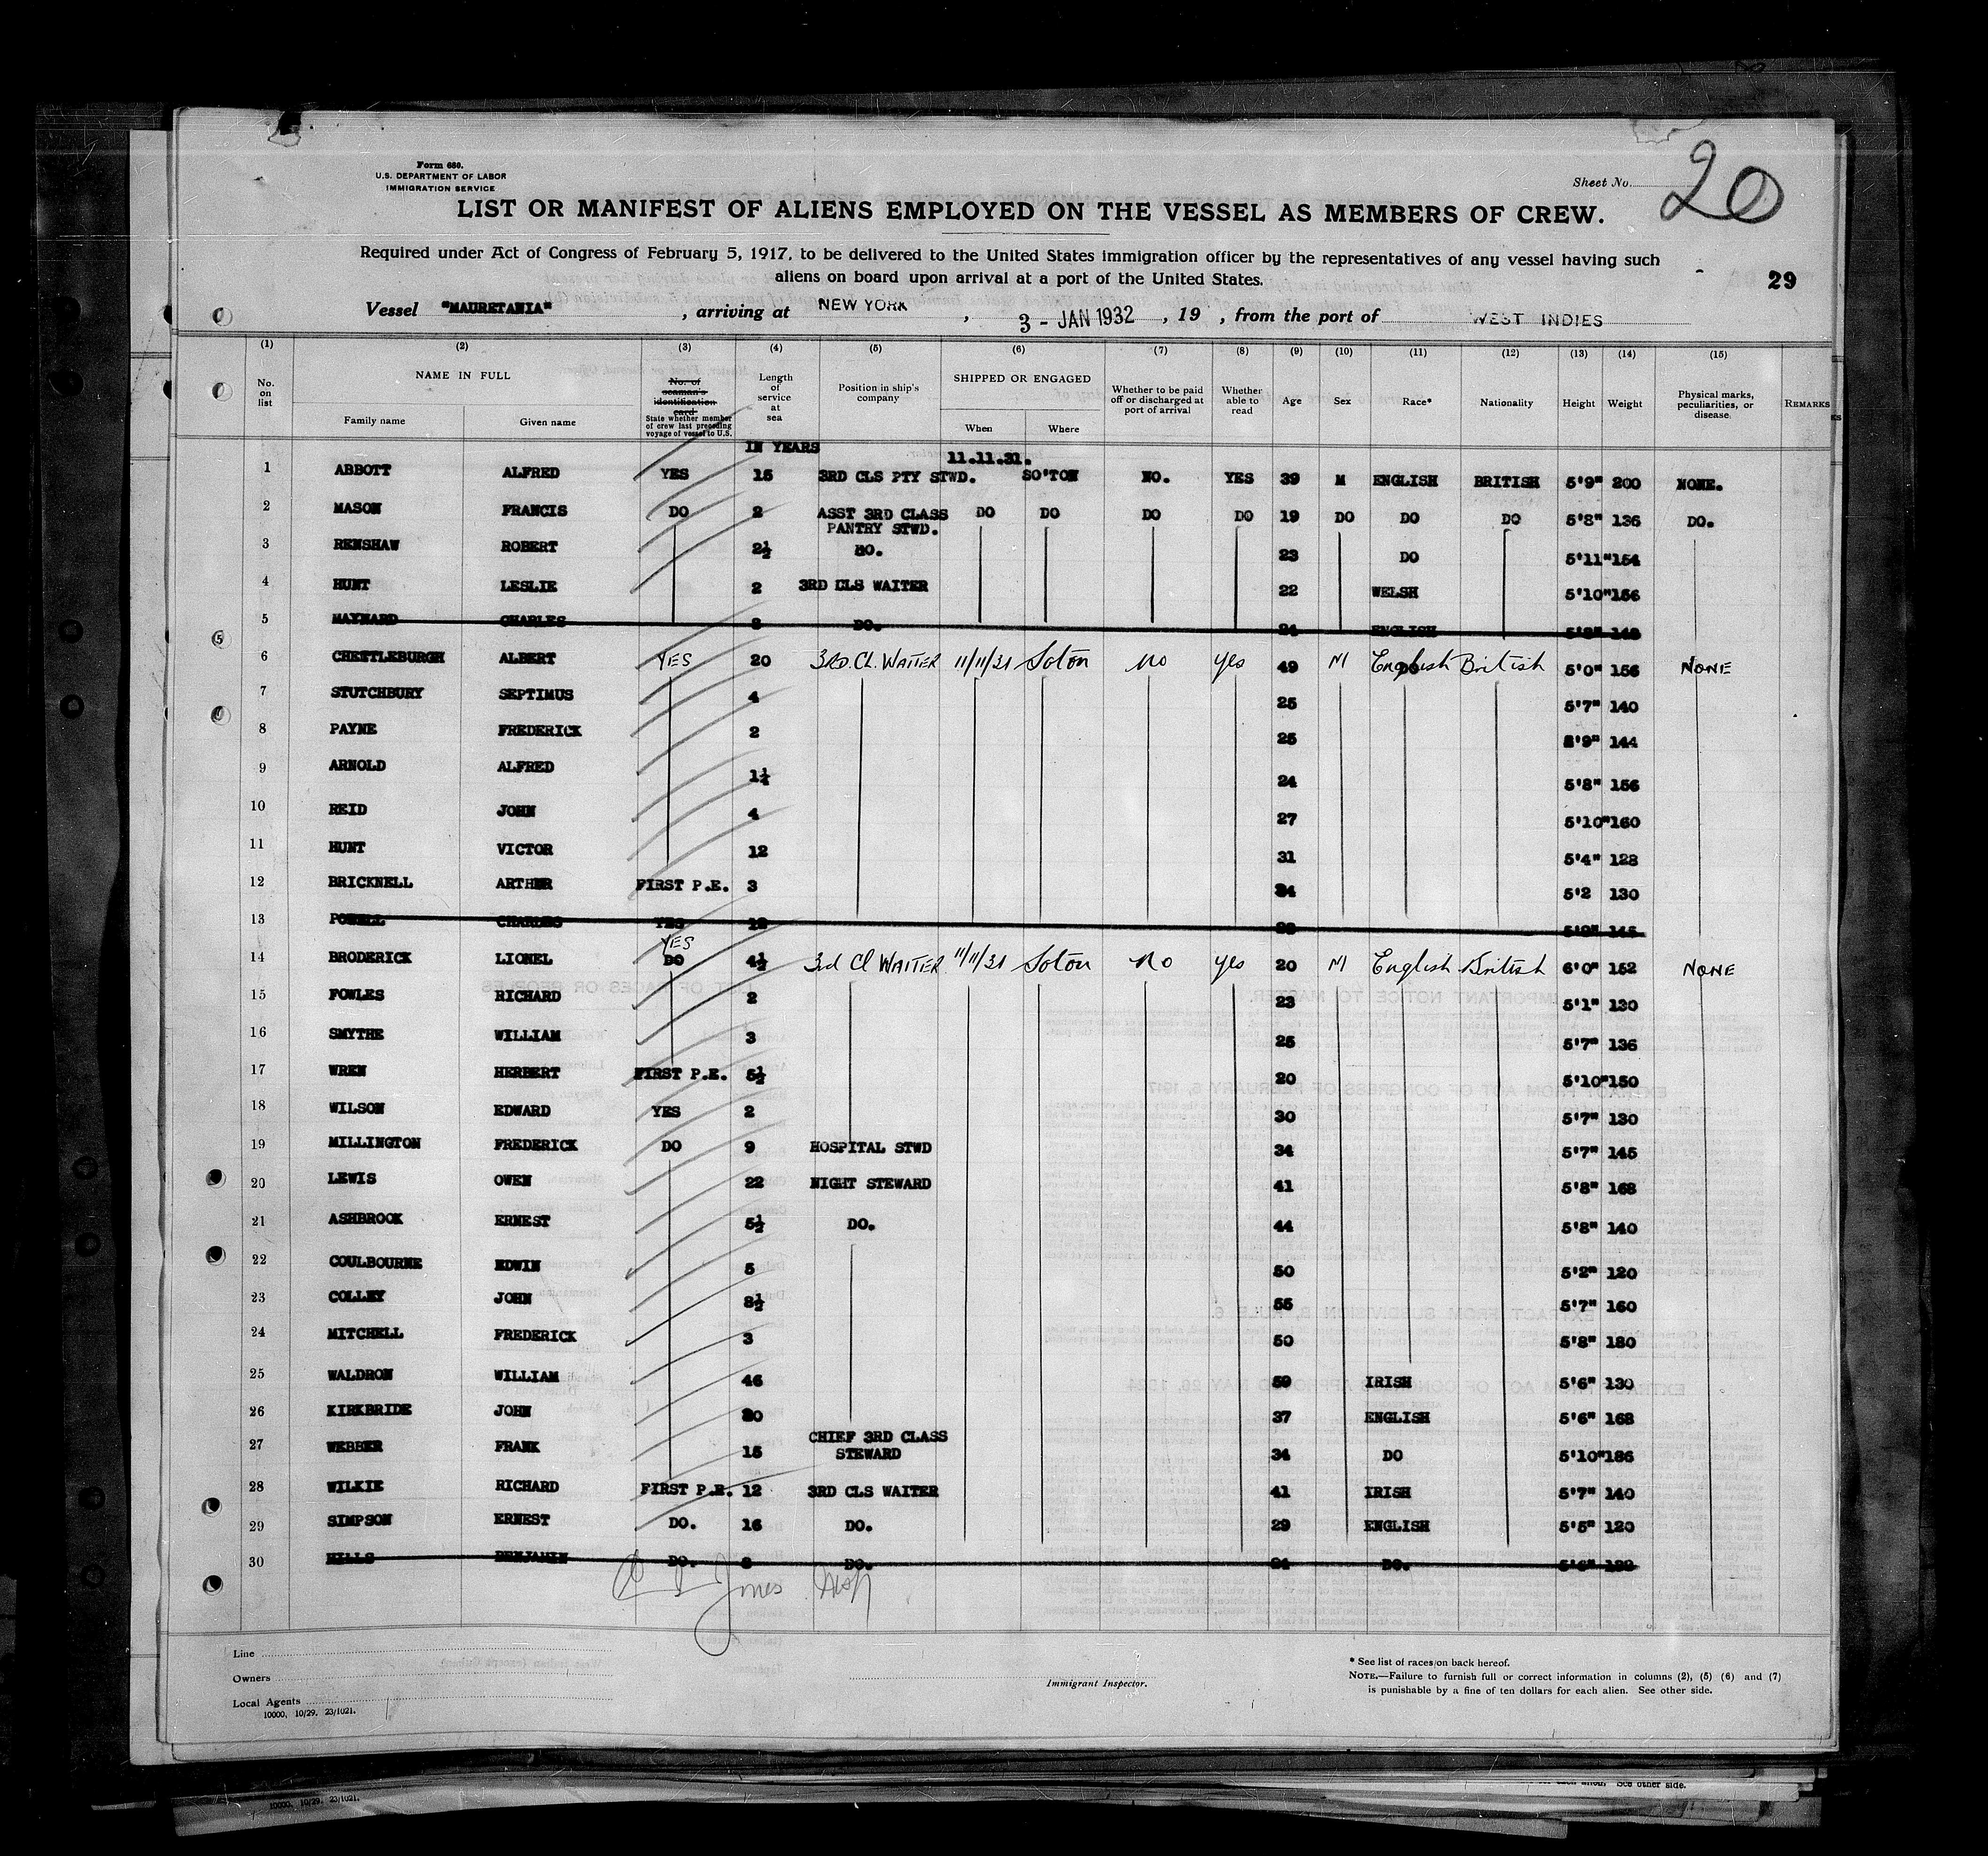 Form 680.
U.S. DEPARTMENT OF LABOR
IMMIGRATION SERVICE
Sheet No. 20
LIST OR MANIFEST OF ALIENS EMPLOYED ON THE VESSEL AS MEMBERS OF CREW.
Required under Act of Congress of February 5, 1917, to be delivered to the United States immigration officer by the representatives of any vessel having such
aliens on board upon arrival at a port of the United States.
29
Vessel "MAURETANIA", arriving at NEW YORK, 3 - JAN 1932, 19 , from the port of WEST INDIES
(1) (2) (3) (4) (5) (6) (7) (8) (9) (10) (11) (12) (13) (14) (15)
No. on list
NAME IN FULL
Family name Given name
No. of seaman's identification card
State whether member of crew last preceding voyage of vessel to U.S.
Length of service at sea
Position in ship's company
SHIPPED OR ENGAGED
When Where
Whether to be paid off or discharged at port of arrival
Whether able to read
Age Sex Race* Nationality Height Weight
Physical marks, peculiarities, or disease.
REMARKS
IN YEARS
11.11.31.
1 ABBOTT ALFRED YES 15 3RD CLS PTY STWD. SO'TON NO. YES 39 M ENGLISH BRITISH 5'9" 200 NONE.
2 MASON FRANCIS DO 2 ASST 3RD CLASS PANTRY STWD. DO DO DO DO 19 DO DO DO 5'8" 136 DO.
3 RENSHAW ROBERT 2½ DO. 23 DO 5'11" 154
4 HUNT LESLIE 2 3RD CLS WAITER 22 WELSH 5'10" 156
5 MAYNARD CHARLES DO. ENGLISH
6 CHESTLEBURGH ALBERT YES 20 3RD. CL. WAITER 11/11/31 Soton No yes 49 M English British 5'0" 156 NONE
7 STUTCHBURY SEPTIMUS 4 25 5'7" 140
8 PAYNE FREDERICK 2 25 5'9" 144
9 ARNOLD ALFRED 1¼ 24 5'8" 156
10 REID JOHN 4 27 5'10" 160
11 HUNT VICTOR 12 31 5'4" 128
12 BRICKNELL ARTHUR FIRST P.E. 3 5'2 130
13 POWELL CHARLES YES
14 BRODERICK LIONEL YES DO 4½ 3rd Cl WAITER 11/11/31 Soton No yes 20 M English British 6'0" 152 NONE
15 FOWLES RICHARD 2 23 5'1" 130
16 SMYTHE WILLIAM 3 25 5'7" 136
17 WREN HERBERT FIRST P.E. 5½ 20 5'10" 150
18 WILSON EDWARD YES 2 30 5'7" 130
19 MILLINGTON FREDERICK DO 9 HOSPITAL STWD 34 5'7" 145
20 LEWIS OWEN 22 NIGHT STEWARD 41 5'8" 168
21 ASHBROOK ERNEST 5½ DO. 44 5'8" 140
22 COULBOURNE EDWIN 5 50 5'2" 120
23 COLLEY JOHN 8½ 55 5'7" 160
24 MITCHELL FREDERICK 3 50 5'8" 180
25 WALDRON WILLIAM 46 59 IRISH 5'6" 130
26 KIRKBRIDE JOHN 20 37 ENGLISH 5'6" 168
27 WEBBER FRANK 15 CHIEF 3RD CLASS STEWARD 34 DO 5'10" 186
28 WILKIE RICHARD FIRST P.E. 12 3RD CLS WAITER 41 IRISH 5'7" 140
29 SIMPSON ERNEST DO. 16 DO. 29 ENGLISH 5'5" 120
30 HILLS BENJAMIN DO. DO. DO.
Jones
Line
Owners
Local Agents
10000, 10/29. 23/1021.
Immigrant Inspector.
* See list of races on back hereof.
NOTE.—Failure to furnish full or correct information in columns (2), (5) (6) and (7)
is punishable by a fine of ten dollars for each alien. See other side.
See other side.
10000, 10/29. 23/1021.